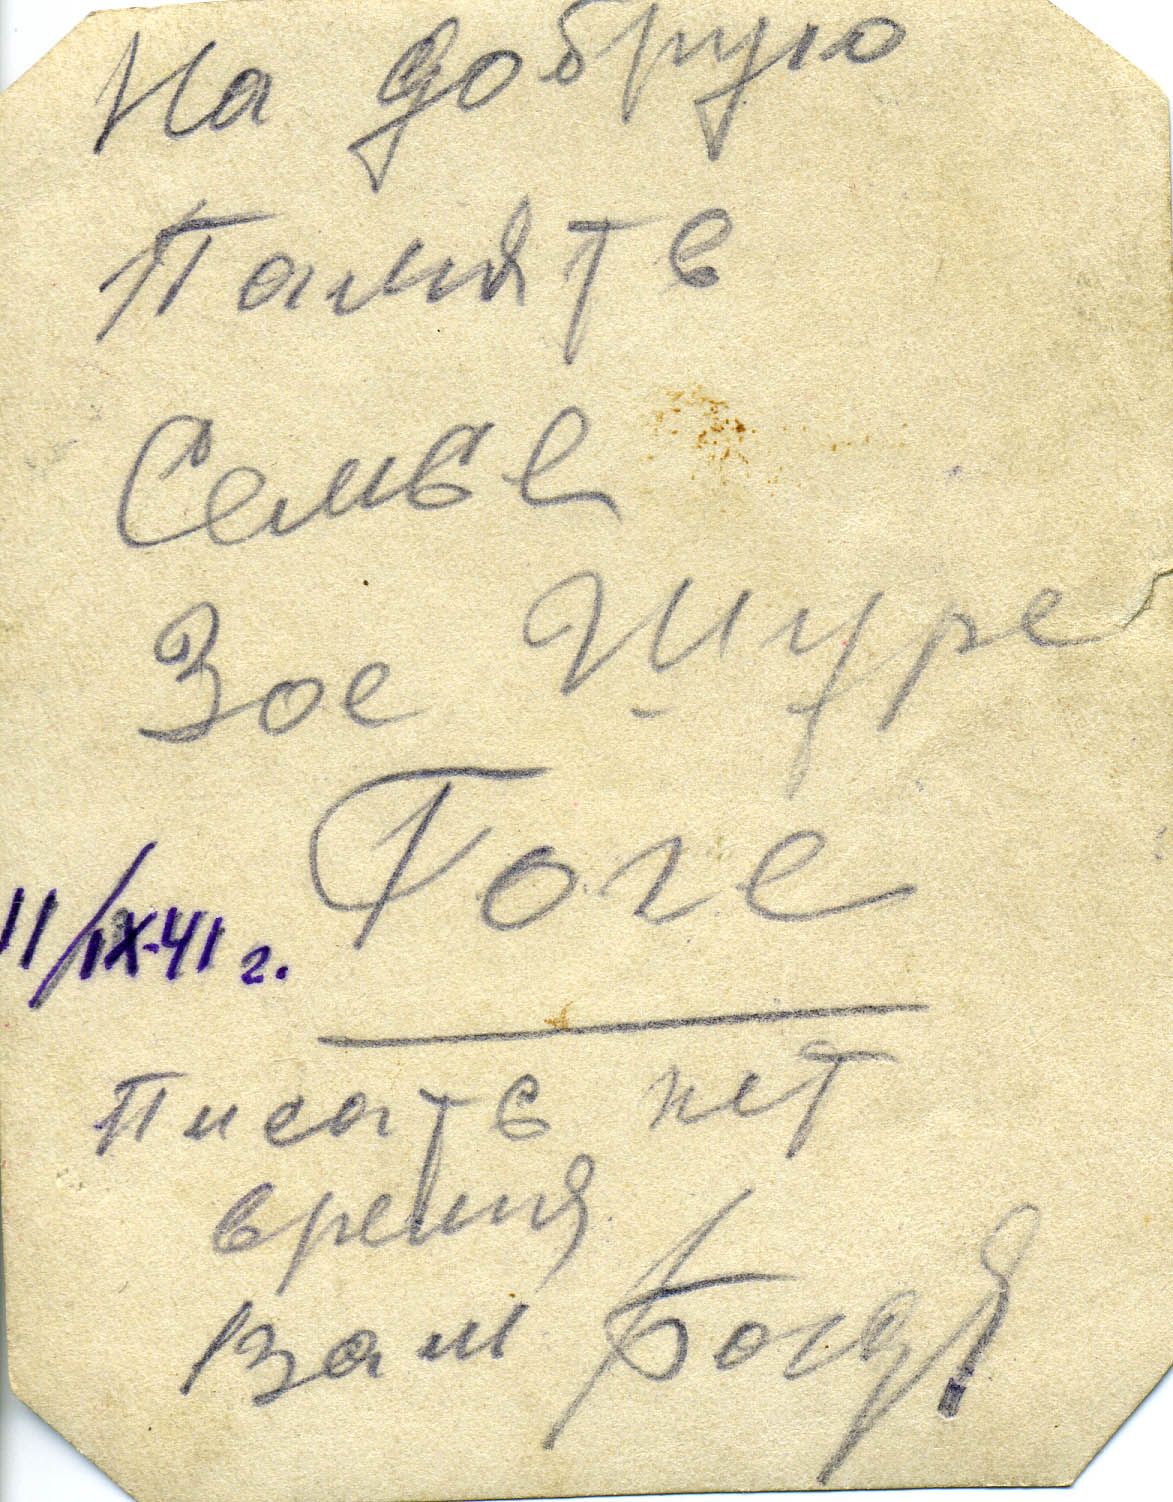 На добрую
Память
Семье
Зое Шуре
Гоге
11/IX-41 г.
Писать нет
время
Вам